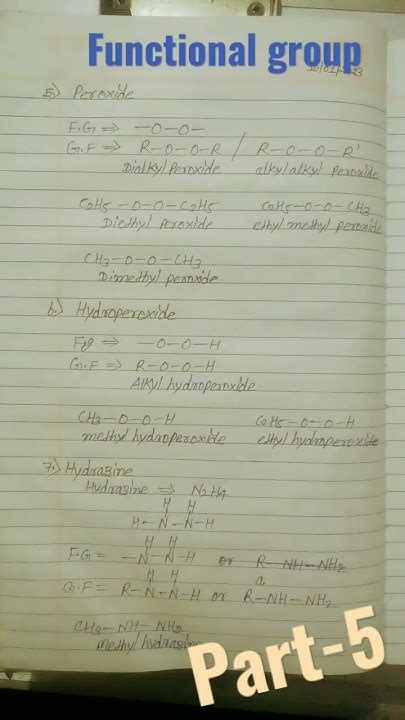 Functional group
5) Peroxide
F.G ⇒ —O—O—
G.F ⇒ R—O—O—R / R—O—O—R'
Dialkyl Peroxide alkyl alkyl peroxide
C2H5—O—O—C2H5 C2H5—O—O—CH3
Diethyl peroxide ethyl methyl peroxide
CH3—O—O—CH3
Dimethyl peroxide.
6) Hydroperoxide
Fg ⇒ —O—O—H
G.F ⇒ R—O—O—H
Alkyl hydroperoxide.
CH3—O—O—H C2H5—O—O—H
methyl hydroperoxide ethyl hydroperoxide
7) Hydrazine
Hydrazine ⇒ N2H4
H H
H—N—N—H
H H
F.G = —N—N—H or R—NH—NH2
H H
G.F = R—N—N—H or R—NH—NH2
CH3—NH—NH2
methyl hydrazine
Part-5